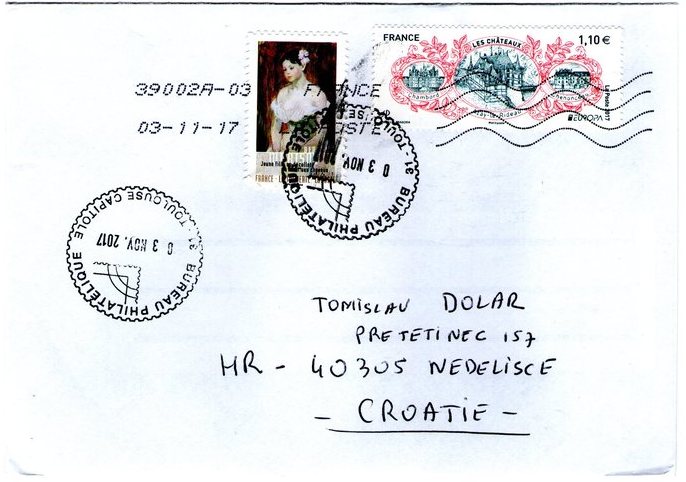 FRANCE 1,10 €
LES CHÂTEAUX
Chambord
Azay-le-Rideau
Chenonceau
EUROPA
39002A-03 FRANCE
03-11-17 LA POSTE
FRANCE
31 BUREAU PHILATÉLIQUE
TOULOUSE
03 NOV.
31 BUREAU PHILATÉLIQUE
TOULOUSE CAPITOLE
03 NOV. 2017
TOMISLAV DOLAR
PRETETINEC 157
HR - 40305 NEDELISCE
- CROATIE -